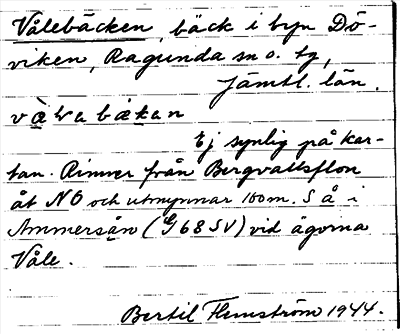 Vålebäcken, bäck i byn Dö-
viken, Ragunda sn o. tg,
Jämtl. län.
Ej synlig på kar-
tan. Rinner från Bergvattsflon
åt NO och utmynnar 100 m. S å i
Ammersån (G 68 SV) vid ägorna
Våle.
Bertil Flemström 1944.